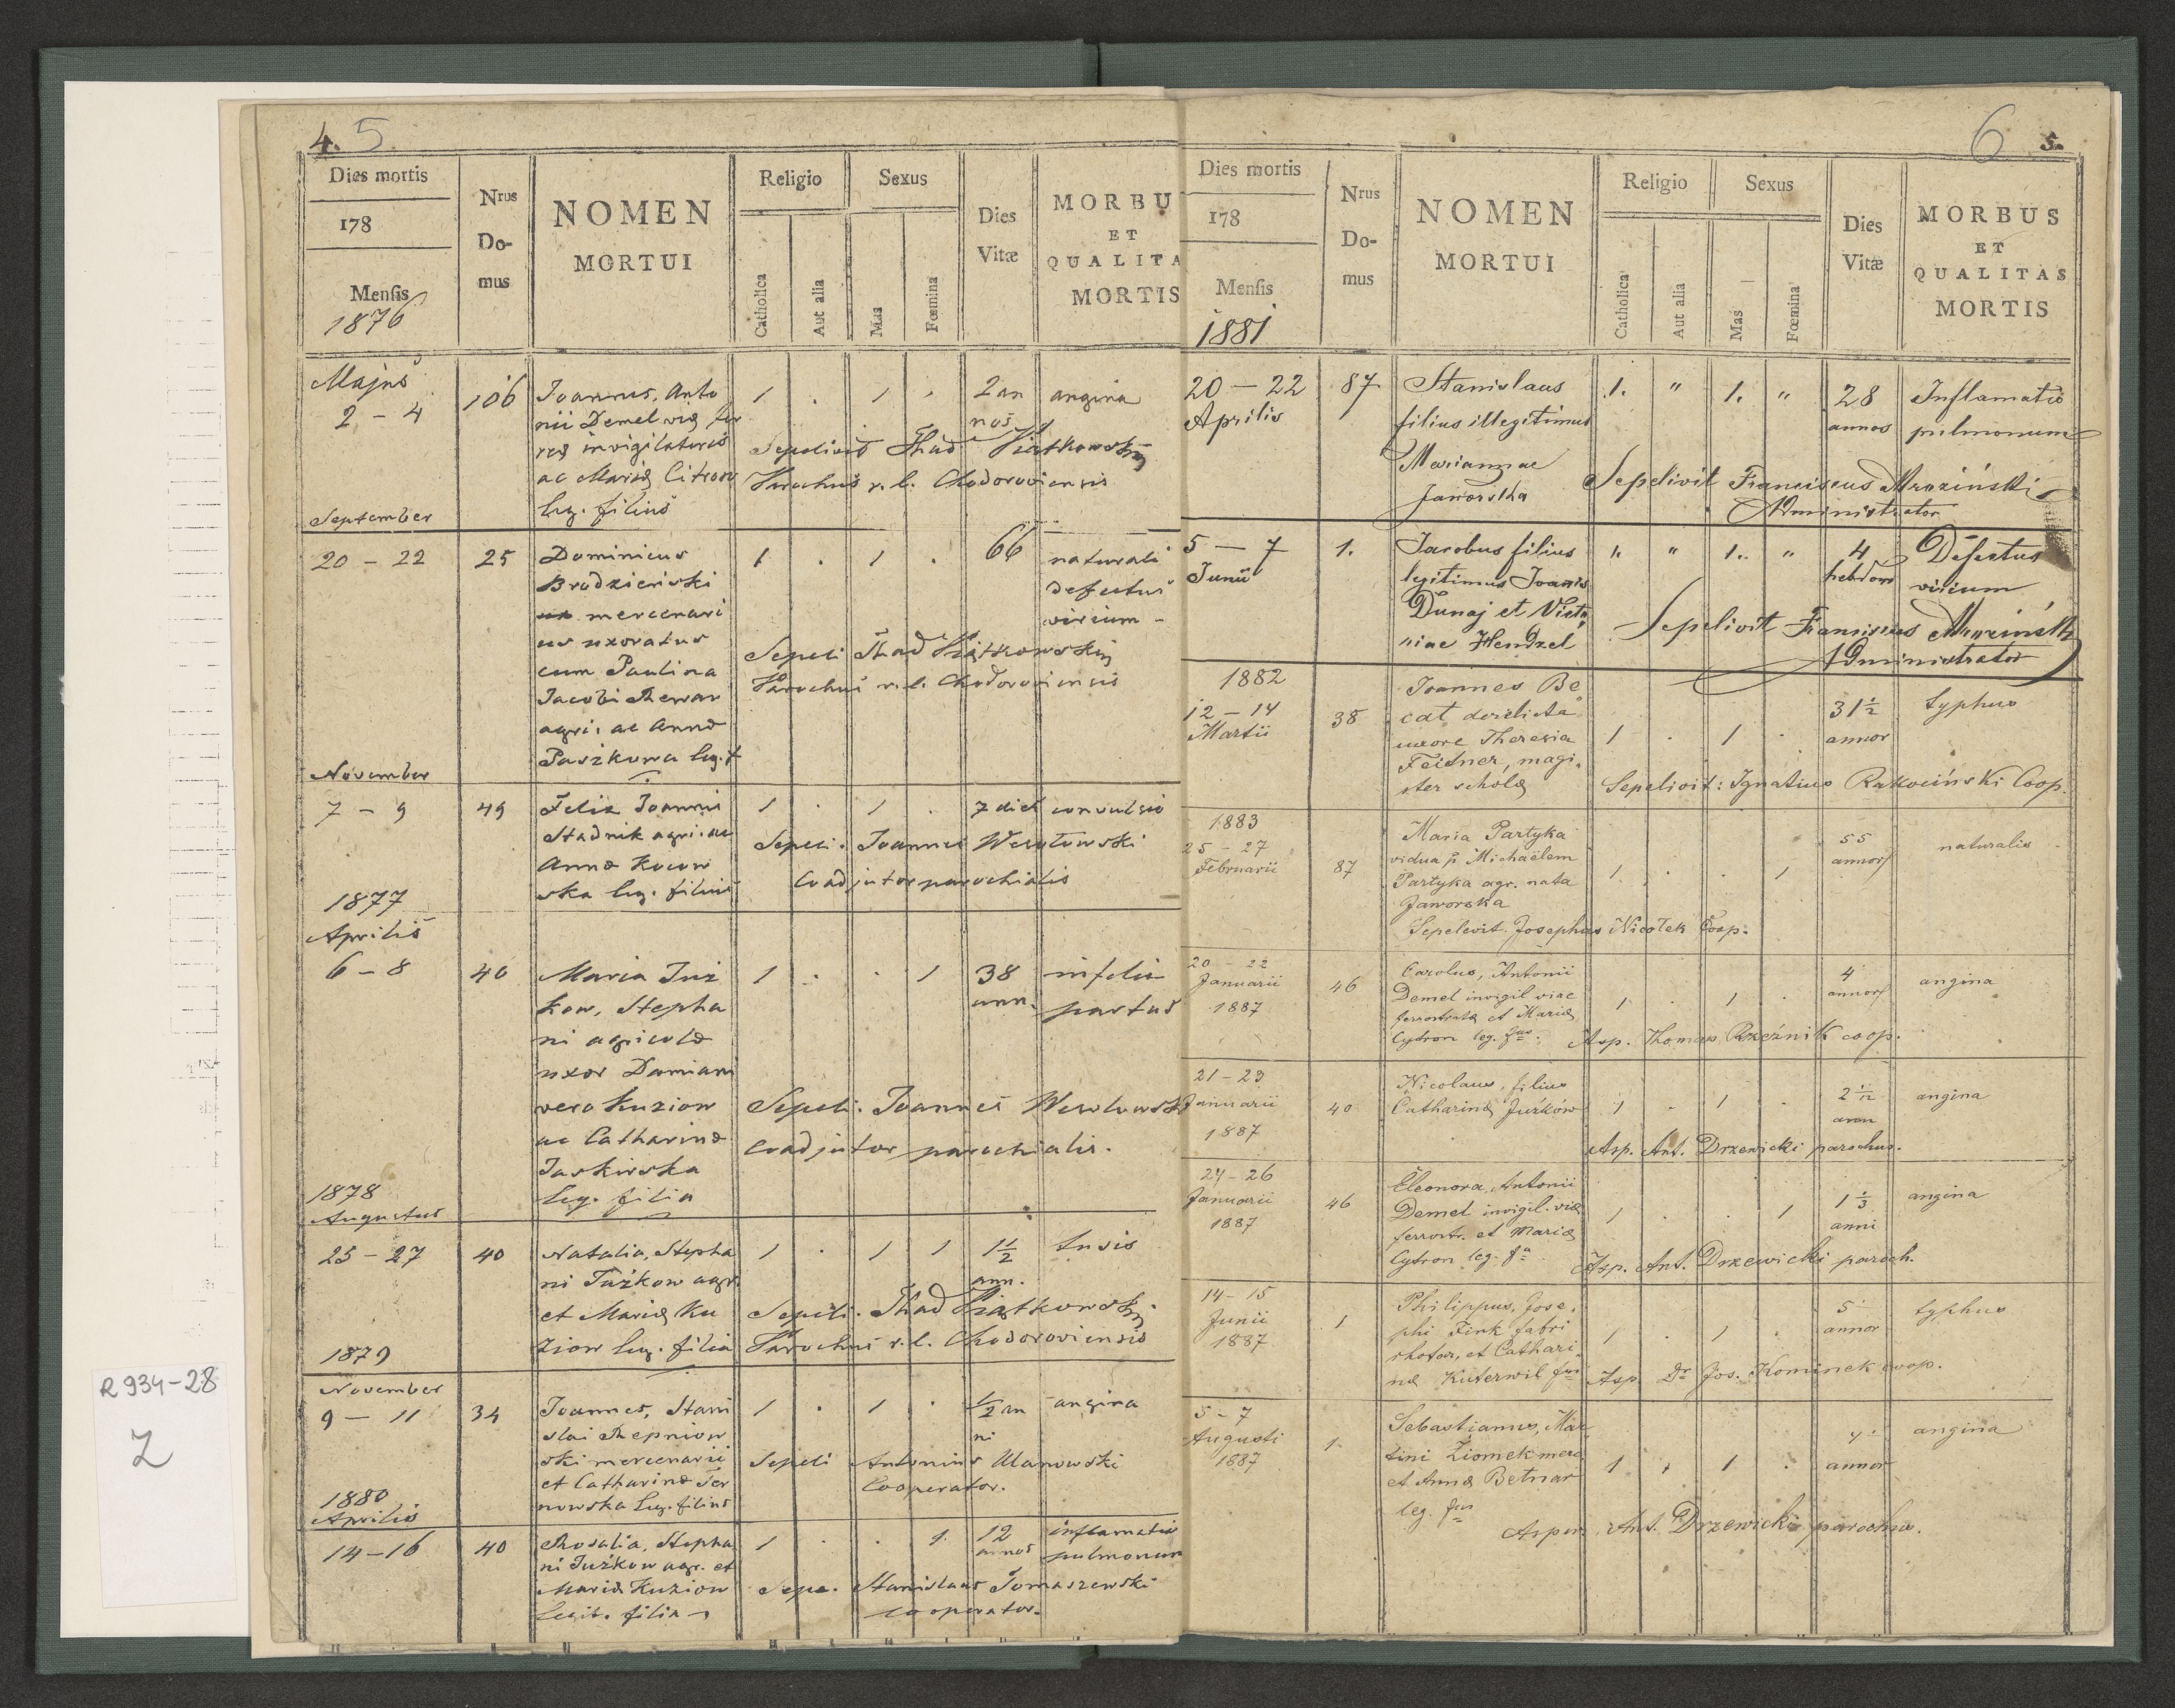 4. 5.
Dies mortis
178
Mensis
1876
Nrus
Do-
mus
NOMEN
MORTUI
Religio
Catholica
Aut alia
Sexus
Mas
Fœmina
Dies
Vitæ
MORBU
ET
QUALITA
MORTIS
Majus
2 – 4
106
Joannes, Anto
nii Demel viæ fer
reæ invigilatoris
ac Mariæ Citron
leg. filius
1 . 1 .
2 an
nos
angina
Sepelivit Thad Piątkowski
Parochus r. l. Chodoroviensis
September
20 – 22
25
Dominicus
Brodzieński
mercenari
us uxoratus
cum Paulina
Jacobi
agri. ac Anna
Paszkowa leg. f
1 . 1 .
66
naturali
defectus
virium –
Sepeli Thad Piątkowski
Parochus r. l. Chodoroviensis
November
7 – 9
49
Felix Joannis
Stadnik agri. ac
Anna Kocow
ska leg. filius
1 . 1 .
7 dies
convulsio
Sepeli. Joannes Wesołowski
Coadjutor parochialis
1877
Aprilis
6 – 8
40
Maria Juz
kow, Stepha
ni agricolæ
uxor Damiani
vero Kuzion
ac Catharina
Jaskirska
leg. filia
1 . . 1
38
ann.
infelix
partus
Sepeli. Joannes Wesołowski
Coadjutor parochialis.
1878
Augustus
25 – 27
40
Natalia, Stepha
ni Juzkow agr.
et Mariæ Ku
zion leg. filia
1 . 1 1
1 1/2
ann.
tusis
Sepeli. Thad Piątkowski
Parochus r. l. Chodoroviensis
1879
November
9 – 11
34
Joannes, Stani
slai Repniow
ski mercenarii
et Catharina Ter
nowska leg. filius
1 . 1 .
1/2 an
ni
angina
Sepeli Antonius Ulanowski
Cooperator.
1880
Aprilis
14–16
40
Rosalia, Stepha
ni Juzkow agr. et
Mariæ Kuzion
legit. filia
1 . . 1.
12
annos
inflamatio
pulmonum
Sepe. Stanislaus Tomaszewski
cooperator.
6 5.
Dies mortis
178
Mensis
1881
Nrus
Do-
mus
NOMEN
MORTUI
Religio
Catholica
Aut alia
Sexus
Mas
Fœmina
Dies
Vitæ
MORBUS
ET
QUALITAS
MORTIS
20 – 22
Aprilis
87
Stanislaus
filius illegitimus
Mariannae
Jaworska
1. " 1. "
28
annos
Inflamatio
pulmonum
Sepelivit Franciscus Mroziński
Administrator
5 – 7
Junii
1.
Jacobus filius
legitimus Joanis
Dunaj et Victo
riae Hendzel
1. " 1. "
4
hebdom
Defectus
virium
Sepelivit Franciscus Mroziński
Administrator
1882
12 – 14
Martii
38
Joannes Be
cat derelicta
uxore Theresia
Feidner, magi
ster scholæ
1 . 1 .
31 1/2
annor
typhus
Sepelivit: Ignatius Rakociński Coop.
1883
25 – 27
Februarii
87
Maria Partyka
vidua p. Michaëlem
Partyka agr. nata
Jaworska
1. . . 1
55
annor
naturalis
Sepelevit. Josephus Nicołek Coop.
20 – 22
Januarii
1887
46
Carolus, Antonii
Demel invigil viae
ferrostratæ et Mariæ
Cytron leg. fus.
1. . 1 .
4
annor
angina
Asp. Thomas Rzeźnik coop.
21 – 23
Januarii
1887
40
Nicolaus, filius
Catharinæ Juzków
1 . 1 .
2 1/12
ann
angina
Asp. Ant. Drzewicki parochus.
24–26
Januarii
1887
46
Eleonora, Antonii
Demel invigil. viæ
ferrostr. et Mariæ
Cytron leg. fa
1 . . 1
1 1/3
anni
angina
Asp. Ant. Drzewicki paroch.
14–15
Junii
1887
1
Philippus, Jose
phi Fink fabri
rhotar, et Cathari
næ Kuterwil fus
1 . 1 .
5
annor
typhus
Asp. Dr Jos. Kominek coop.
5 – 7
Augusti
1887
1.
Sebastianus, Mar
tini Ziomek merc
et Annæ Betnar
leg. fus
1 . 1 .
4
annor
angina
Asper. Ant. Drzewicki parochus.
R 934–28
Z